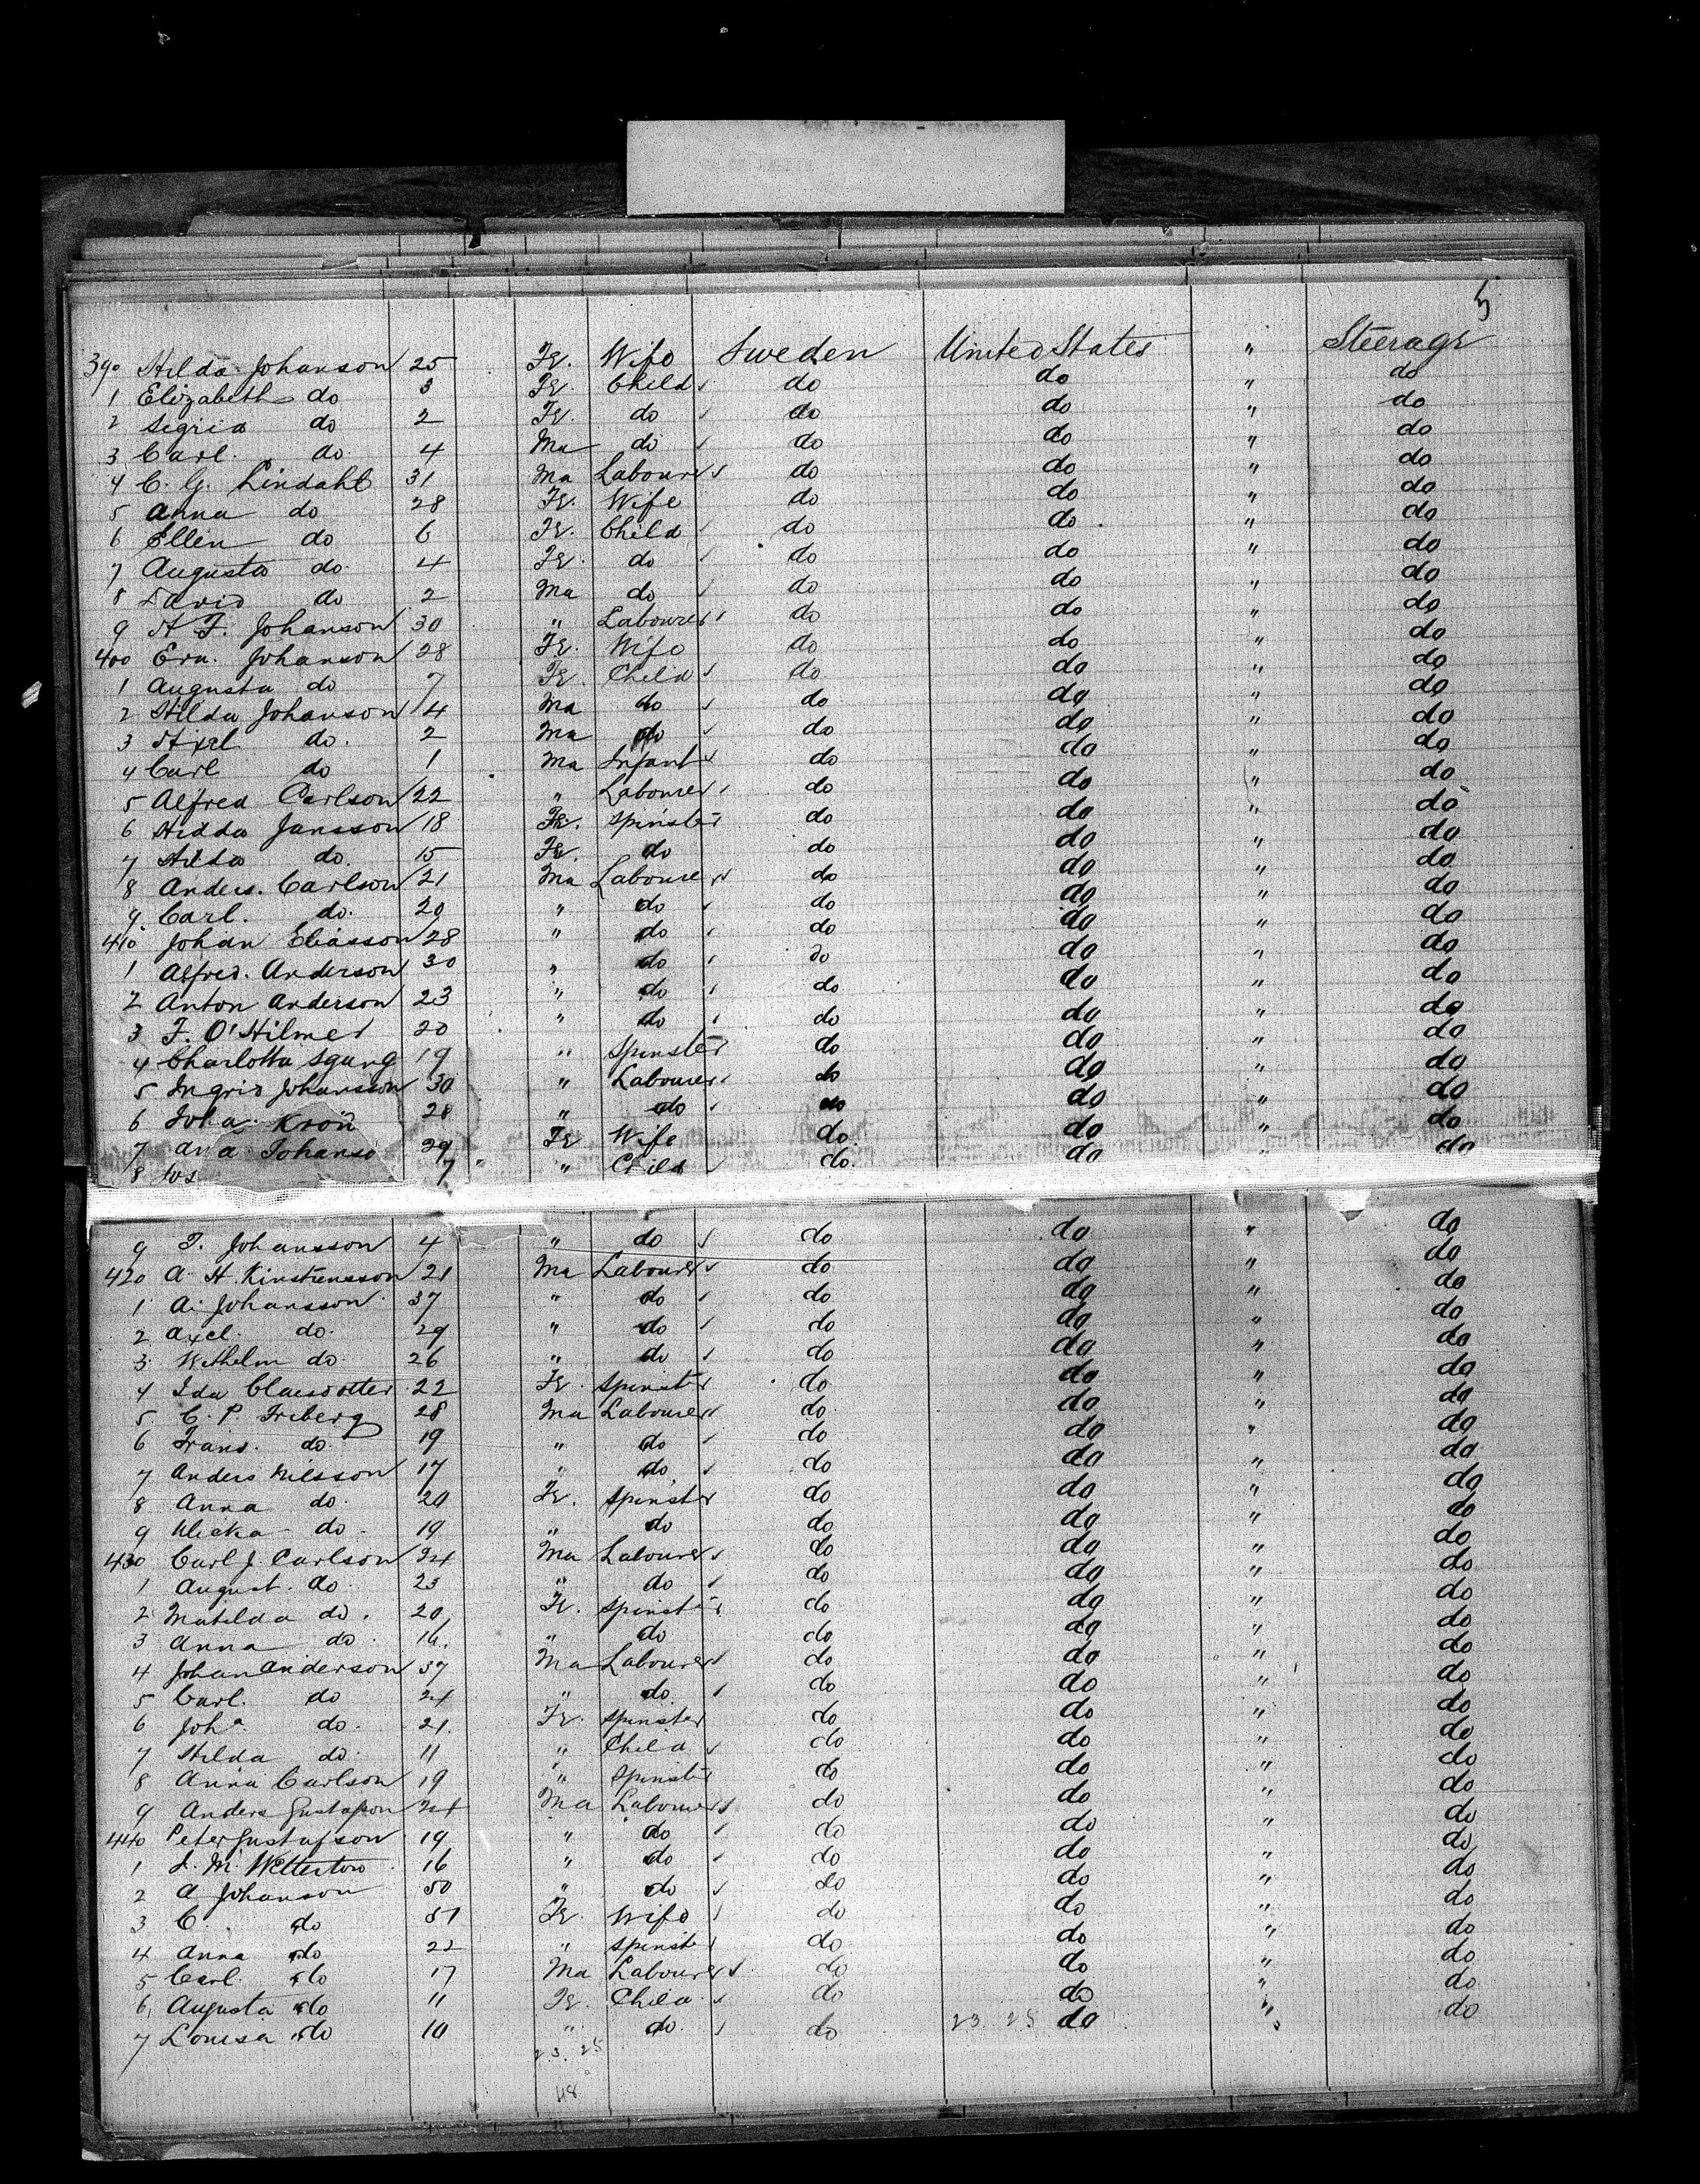 5
390 Hilda Johanson 25 Fe. Wife Sweden United States " Steerage
1 Elizabeth do 3 Fe. Child do do " do
2 Sigrid do 2 Fe. do do do " do
3 Carl. do 4 Ma do do do " do
4 C. G. Lindahl 31 Ma Labourer do do " do
5 Anna do 28 Fe. Wife do do " do
6 Ellen do 6 Fe. Child do do " do
7 Augusta do 4 Fe. do do do " do
8 David do 2 Ma do do do " do
9 A F. Johanson 30 " Labourer do do " do
400 Eva. Johanson 28 Fe. Wife do do " do
1 Augusta do 7 Fe. Child do do " do
2 Hilda Johanson 4 Ma do do do " do
3 Axel do. 2 Ma do do do " do
4 Carl do 1 Ma Infant do do " do
5 Alfred Carlson 22 " Labourer do do " do
6 Hedda Jansson 18 Fe. Spinster do do " do
7 Hilda do. 15 Fe. do do do " do
8 Anders. Carlson 21 Ma Labourer do do " do
9 Carl. do. 20 " do do do " do
410 Johan Eliasson 28 " do do do " do
1 Alfred. Anderson 30 " do do do " do
2 Anton Anderson 23 " do do do " do
3 F. O'Hilmer 20 " do do do " do
4 Charlotta 19 " Spinster do do " do
5 Ingrid Johansson 30 " Labourer do do " do
6 Joha. Kron 28 " do do do " do
7 Johanso 29 Fe Wife do. do " do
8 7 " Child do. do " do
9 T. Johansson 4 " do do do " do
420 A. H. 21 Ma Labourer do do " do
1 A. Johansson 37 " do do do " do
2 Axel. do. 29 " do do do " do
3 Wilhelm do. 26 " do do do " do
4 Ida Claesdotter 22 Fe. Spinster do do " do
5 C. P. Friberg 28 Ma Labourer do do " do
6 Frans. do. 19 " do do do " do
7 Anders Nilsson 17 " do do do " do
8 Anna do. 20 Fe. Spinster do do " do
9 do. 19 " do do do " do
430 Carl J. Carlson 24 Ma Labourer do do " do
1 August. do. 23 " do do do " do
2 Matilda do. 20 Fe. Spinster do do " do
3 Anna do. 16. " do do do " do
4 Johan Anderson 37 Ma Labourer do do " do
5 Carl. do 24 " do. do do " do
6 Joha do. 21. Fe. Spinster do do " do
7 Hilda do. 11 " Child do do " do
8 Anna Carlson 19 " Spinster do do " do
9 Anders Gustafson 24 Ma Labourer do do " do
440 Peter Gustafson 19 " do do do " do
1 16 " do do do " do
2 A Johanson 50 " do do do " do
3 C. do 51 Fe. Wife do do " do
4 Anna do 22 " Spinster do do " do
5 Carl. do 17 Ma Labourer do do " do
6 Augusta do 11 Fe. Child do do " do
7 Louisa do 10 " do. do 23 25 do " do
23. 25
48